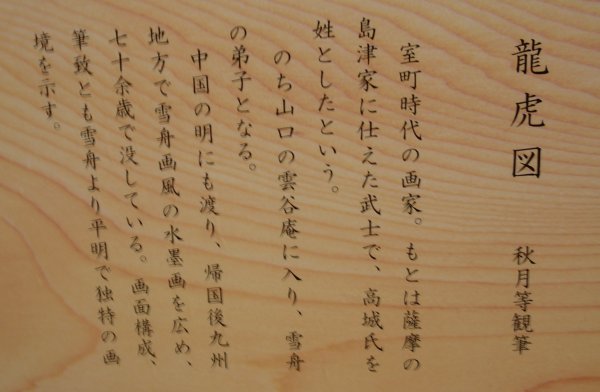 龍虎図
秋月等観筆
室町時代の画家。もとは薩摩の
島津家に仕えた武士で、高城氏を
姓としたという。
のち山口の雲谷庵に入り、雪舟
の弟子となる。
中国の明にも渡り、帰国後九州
地方で雪舟画風の水墨画を広め、
七十余歳で没している。画面構成、
筆致とも雪舟より平明で独特の画
境を示す。